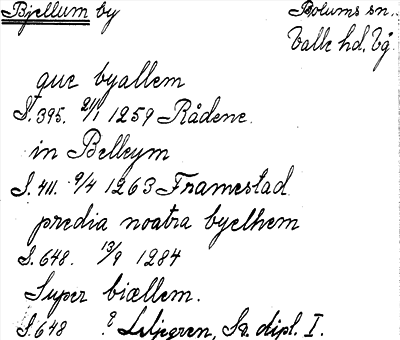 Bjellum by Bolums sn.
Valle hd, Vg
que byallem
S. 395. 21/1 1259 Rådene.
in Belleym
S. 411. 9/4 1263 Framestad.
predia noatra byelhem
S. 648. 13/9 1284
Super biællem.
S. 648 ? Liljegren, Sv. dipl. I.